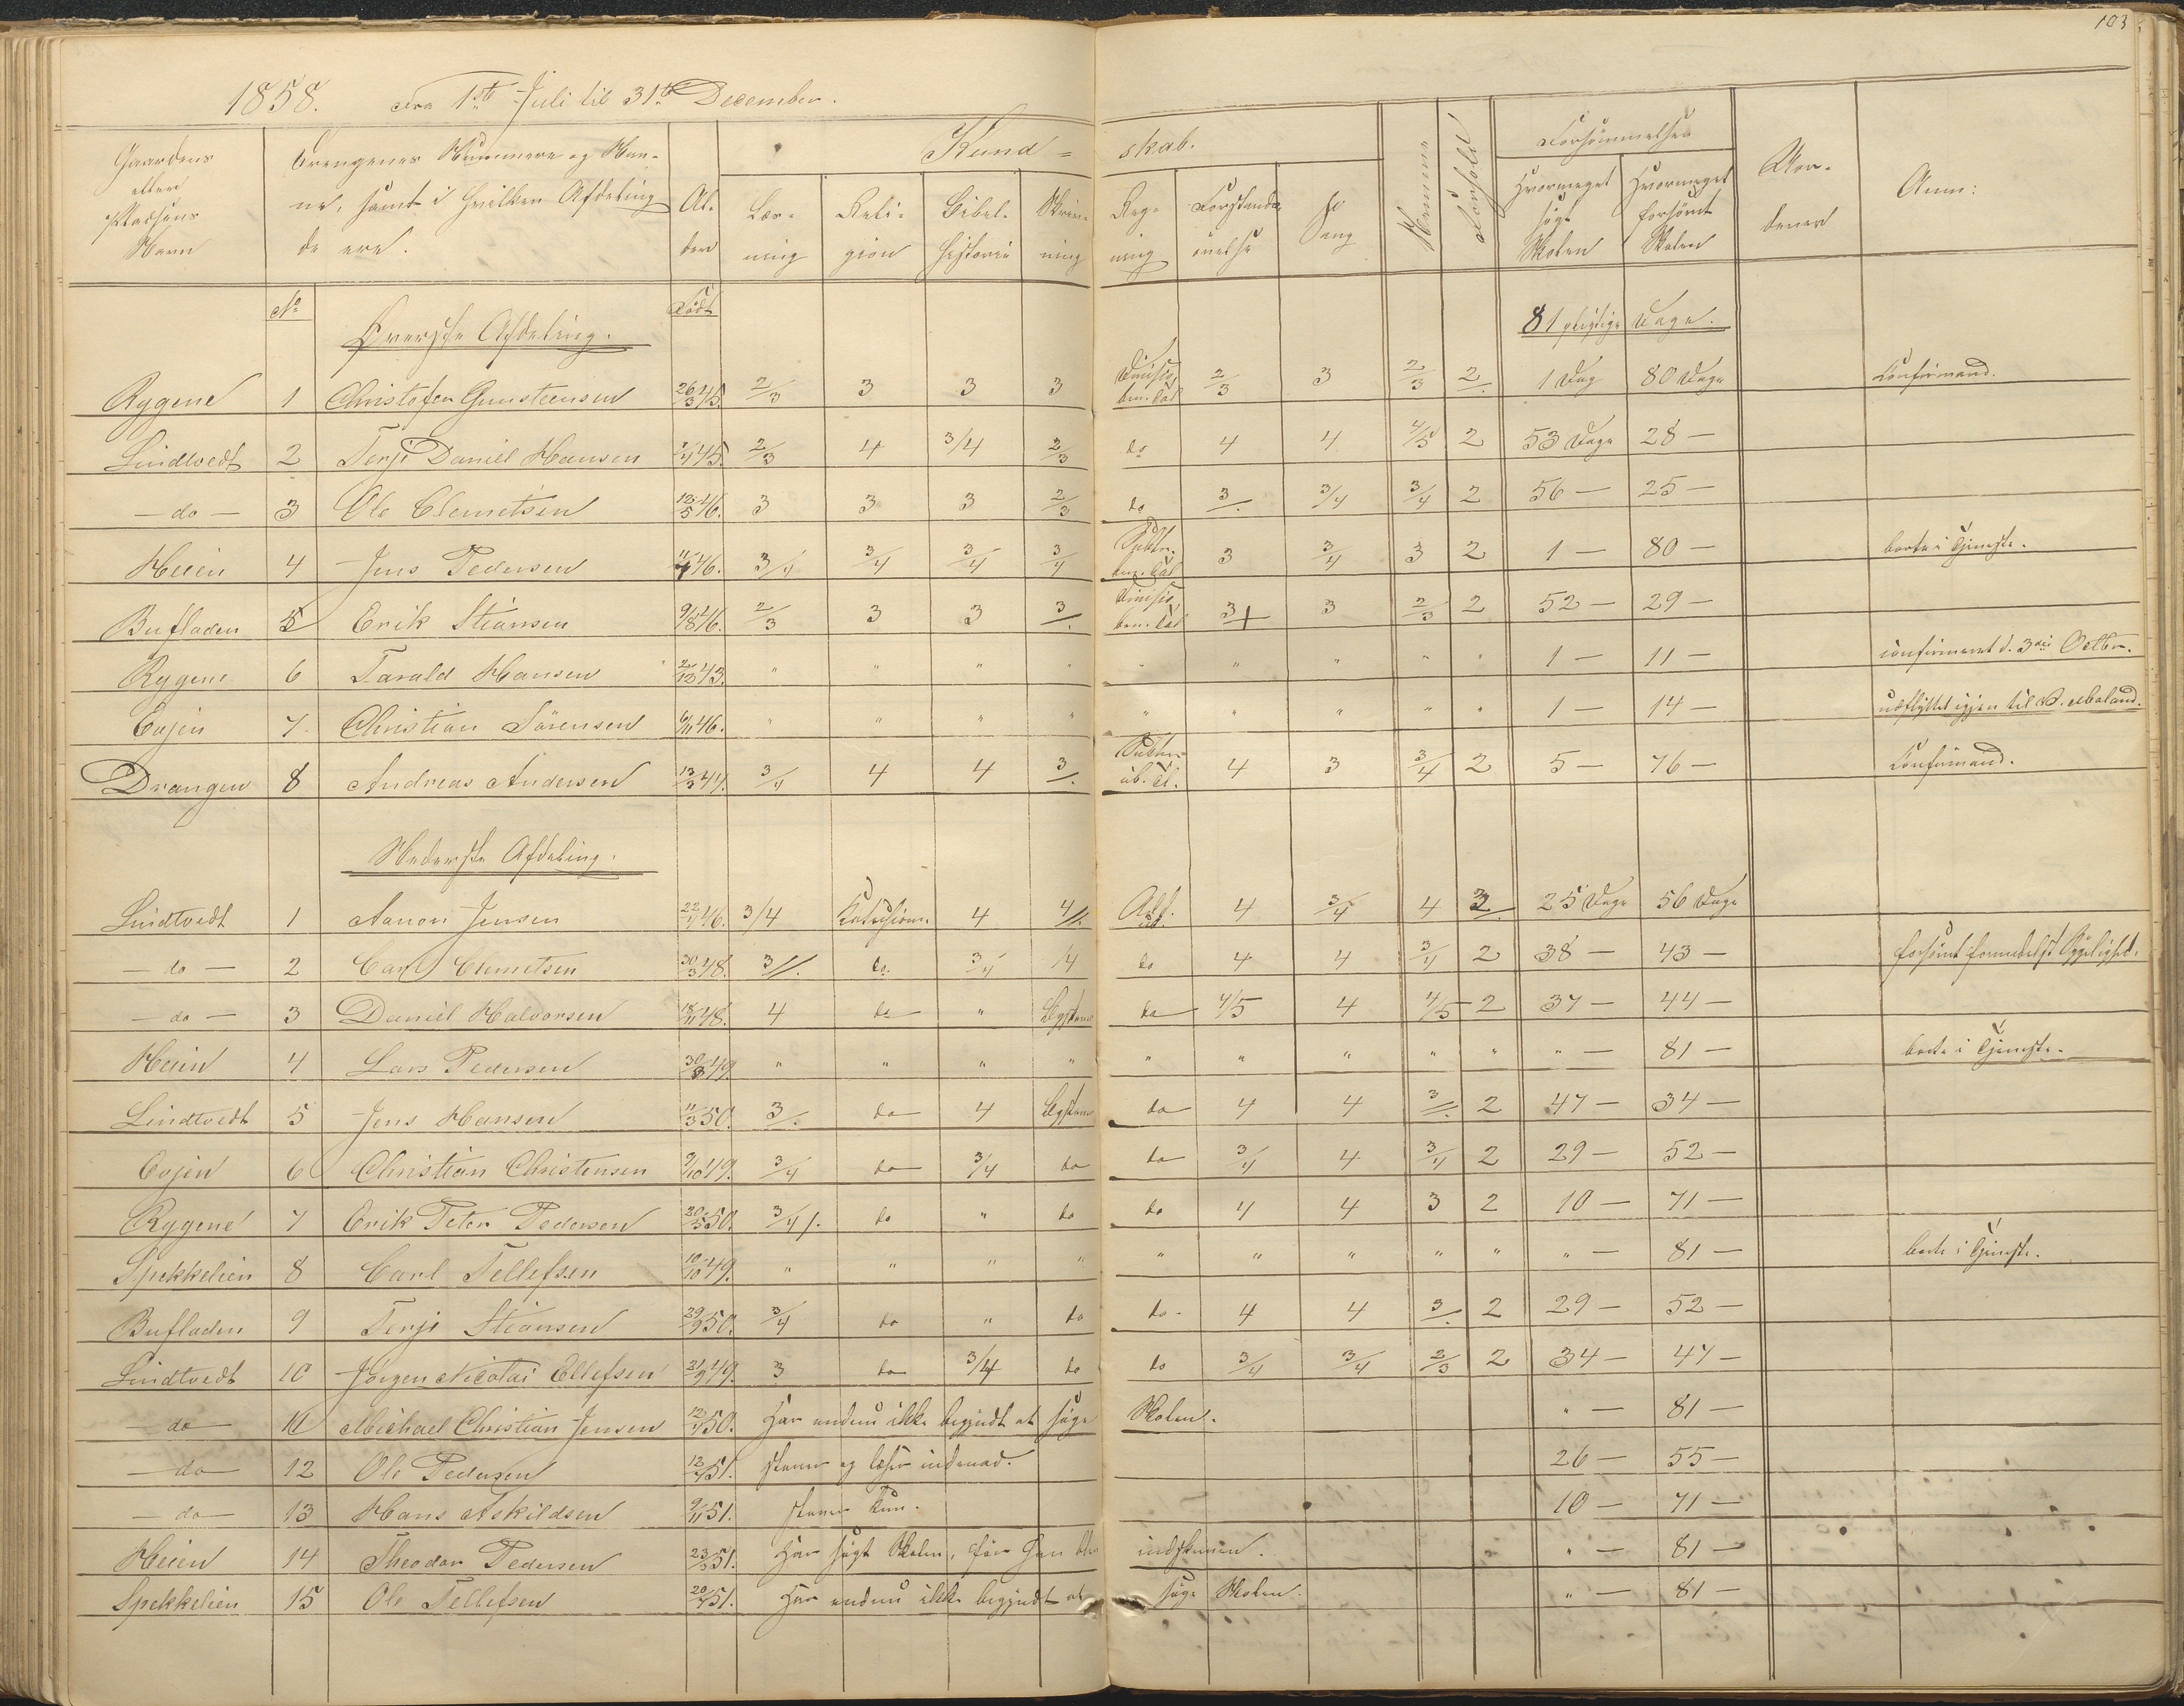 103
1858. Fra 1ste Juli til 31te December.
Gaardens eller Pladsens Navn | Drengenes Nummere og Navne, samt i hvilken Afdeling de ere. | Alder | Kundskab. | Forhold | Forsömmelser | Anm:
Læsning | Religion | Bibelhistorie | Skrivning | Regning | Forstandsövelse | Sang | Hvormeget sögt Skolen | Hvormeget forsömt Skolen
No | Øverste Afdeling. | Født | 81 pligtige Dage.
Rygene 1 Christofer Gunsteensen 26/3 45. 2/3 3 3 3 2/3 3 2/3 2/. 1 Dag 80 Dage Confirmand.
Lindtvedt 2 Terje Daniel Hansen 45. 2/3 4 3/4 2/3 do 4 4 4/5 2 53 Dage 28 —
— do — 3 Ole Clemetsen 13/5 46. 3 3 3 2/3 do 3/. 3/4 3/4 2 56 — 25 —
Heien 4 Jens Pedersen 46. 3/4 3/4 3/4 3/4 3 3/4 3 2 1 — 80 — borte i Tjeneste.
Bufladen 5 Erik Stiansen 9/8 46. 2/3 3 3 3/. 3+ 3 2/3 2 52 — 29 —
Rygene 6 Tarald Hansen 2/12 43. " " " " " " " " " 1 — 11 — confirmeret d. 3die Octbr.
Evjen 7. Christian Sörensen 6/11 46. " " " " " " " " " 1 — 14 — udflyttet igjen til
Drangen 8 Andreas Andersen 13/3 44. 3/4 4 4 3/. 4 3 3/4 2 5 — 76 — Confirmand.
Nederste Afdeling.
Lindtvedt 1 Aanon Jensen 22/1 46. 3/4 4 4//. 4 3/4 4 25 Dage 56 Dage
— do — 2 Carl Clemetsen 30/3 48. 3//. do. 3/4 4 do 4 4 3/4 2 38 — 43 — forsömt formedelst Sygelighed.
— do — 3 Daniel Halvorsen 18/11 48. 4 do " do 4/5 4 4/5 2 37 — 44 —
Heien 4 Lars Pedersen 30/8 49. " " " " " " " " " " — 81 — borte i Tjeneste.
Lindtvedt 5 Jens Hansen 11/3 50. 3/. do 4 do 4 4 3//. 2 47 — 34 —
Evjen 6 Christian Christensen 9/10 49. 3/4 do 3/4 do do 3/4 4 3/4 2 29 — 52 —
Rygene 7 Erik Peter Pedersen 20/5 50. 3/4/. do " do do 4 4 3 2 10 — 71 —
Spekkelien 8 Carl Tellefsen 10/10 49. " " " " " " " " " " — 81 — borte i Tjeneste.
Bufladen 9 Terje Stiansen 29/9 50. 3/4 do " do do. 4 4 3/. 2 29 — 52 —
Lindtvedt 10 Jörgen Nicolai Ellefsen 21/9 49. 3 do 3/4 do do 3/4 3/4 2/3 2 34 — 47 —
— do — 11 Michael Christian Jensen 50. Har endnu ikke begyndt at söge Skolen. " — 81 —
— do — 12 Ole Pedersen 51. staver og læser indenad. 26 — 55 —
— do — 13 Hans Askildsen 9/11 51. staver kun. 10 — 71 —
Heien 14 Theodor Pedersen 23/3 51. Har sögt Skolen, för han blev indskreven. " — 81 —
Spekkelien 15 Ole Tellefsen 51. Har endnu ikke begyndt at söge Skolen. " — 81 —